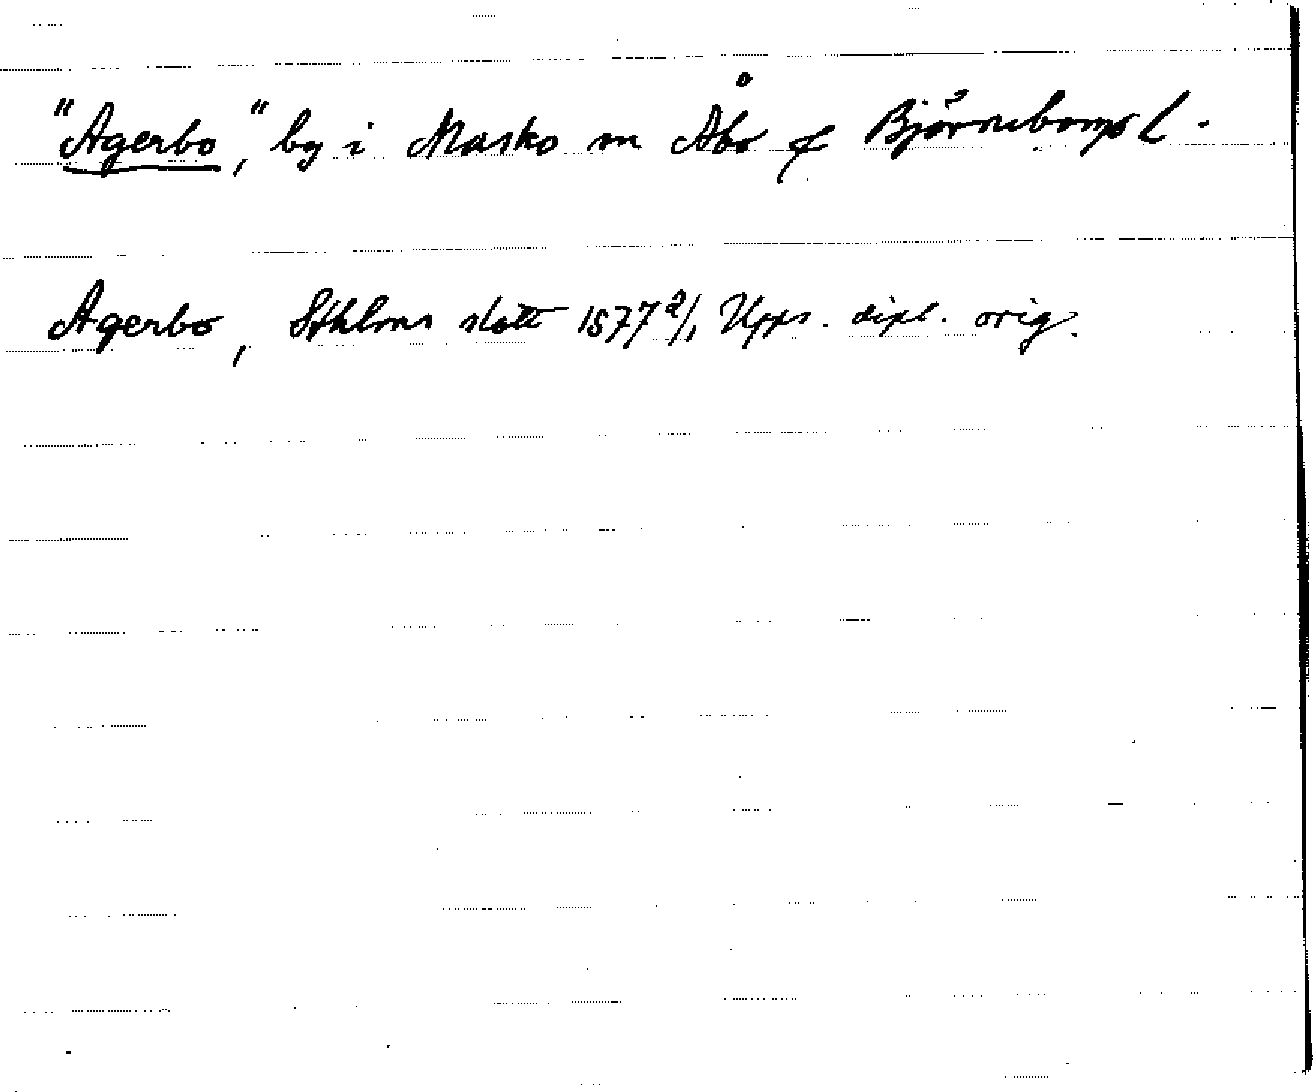 "Agerbo," by i Masko sn Åbo o Björneborgs l.
Agerbo, Sthlms slott 1577 2/1 Upps. dipl. orig.